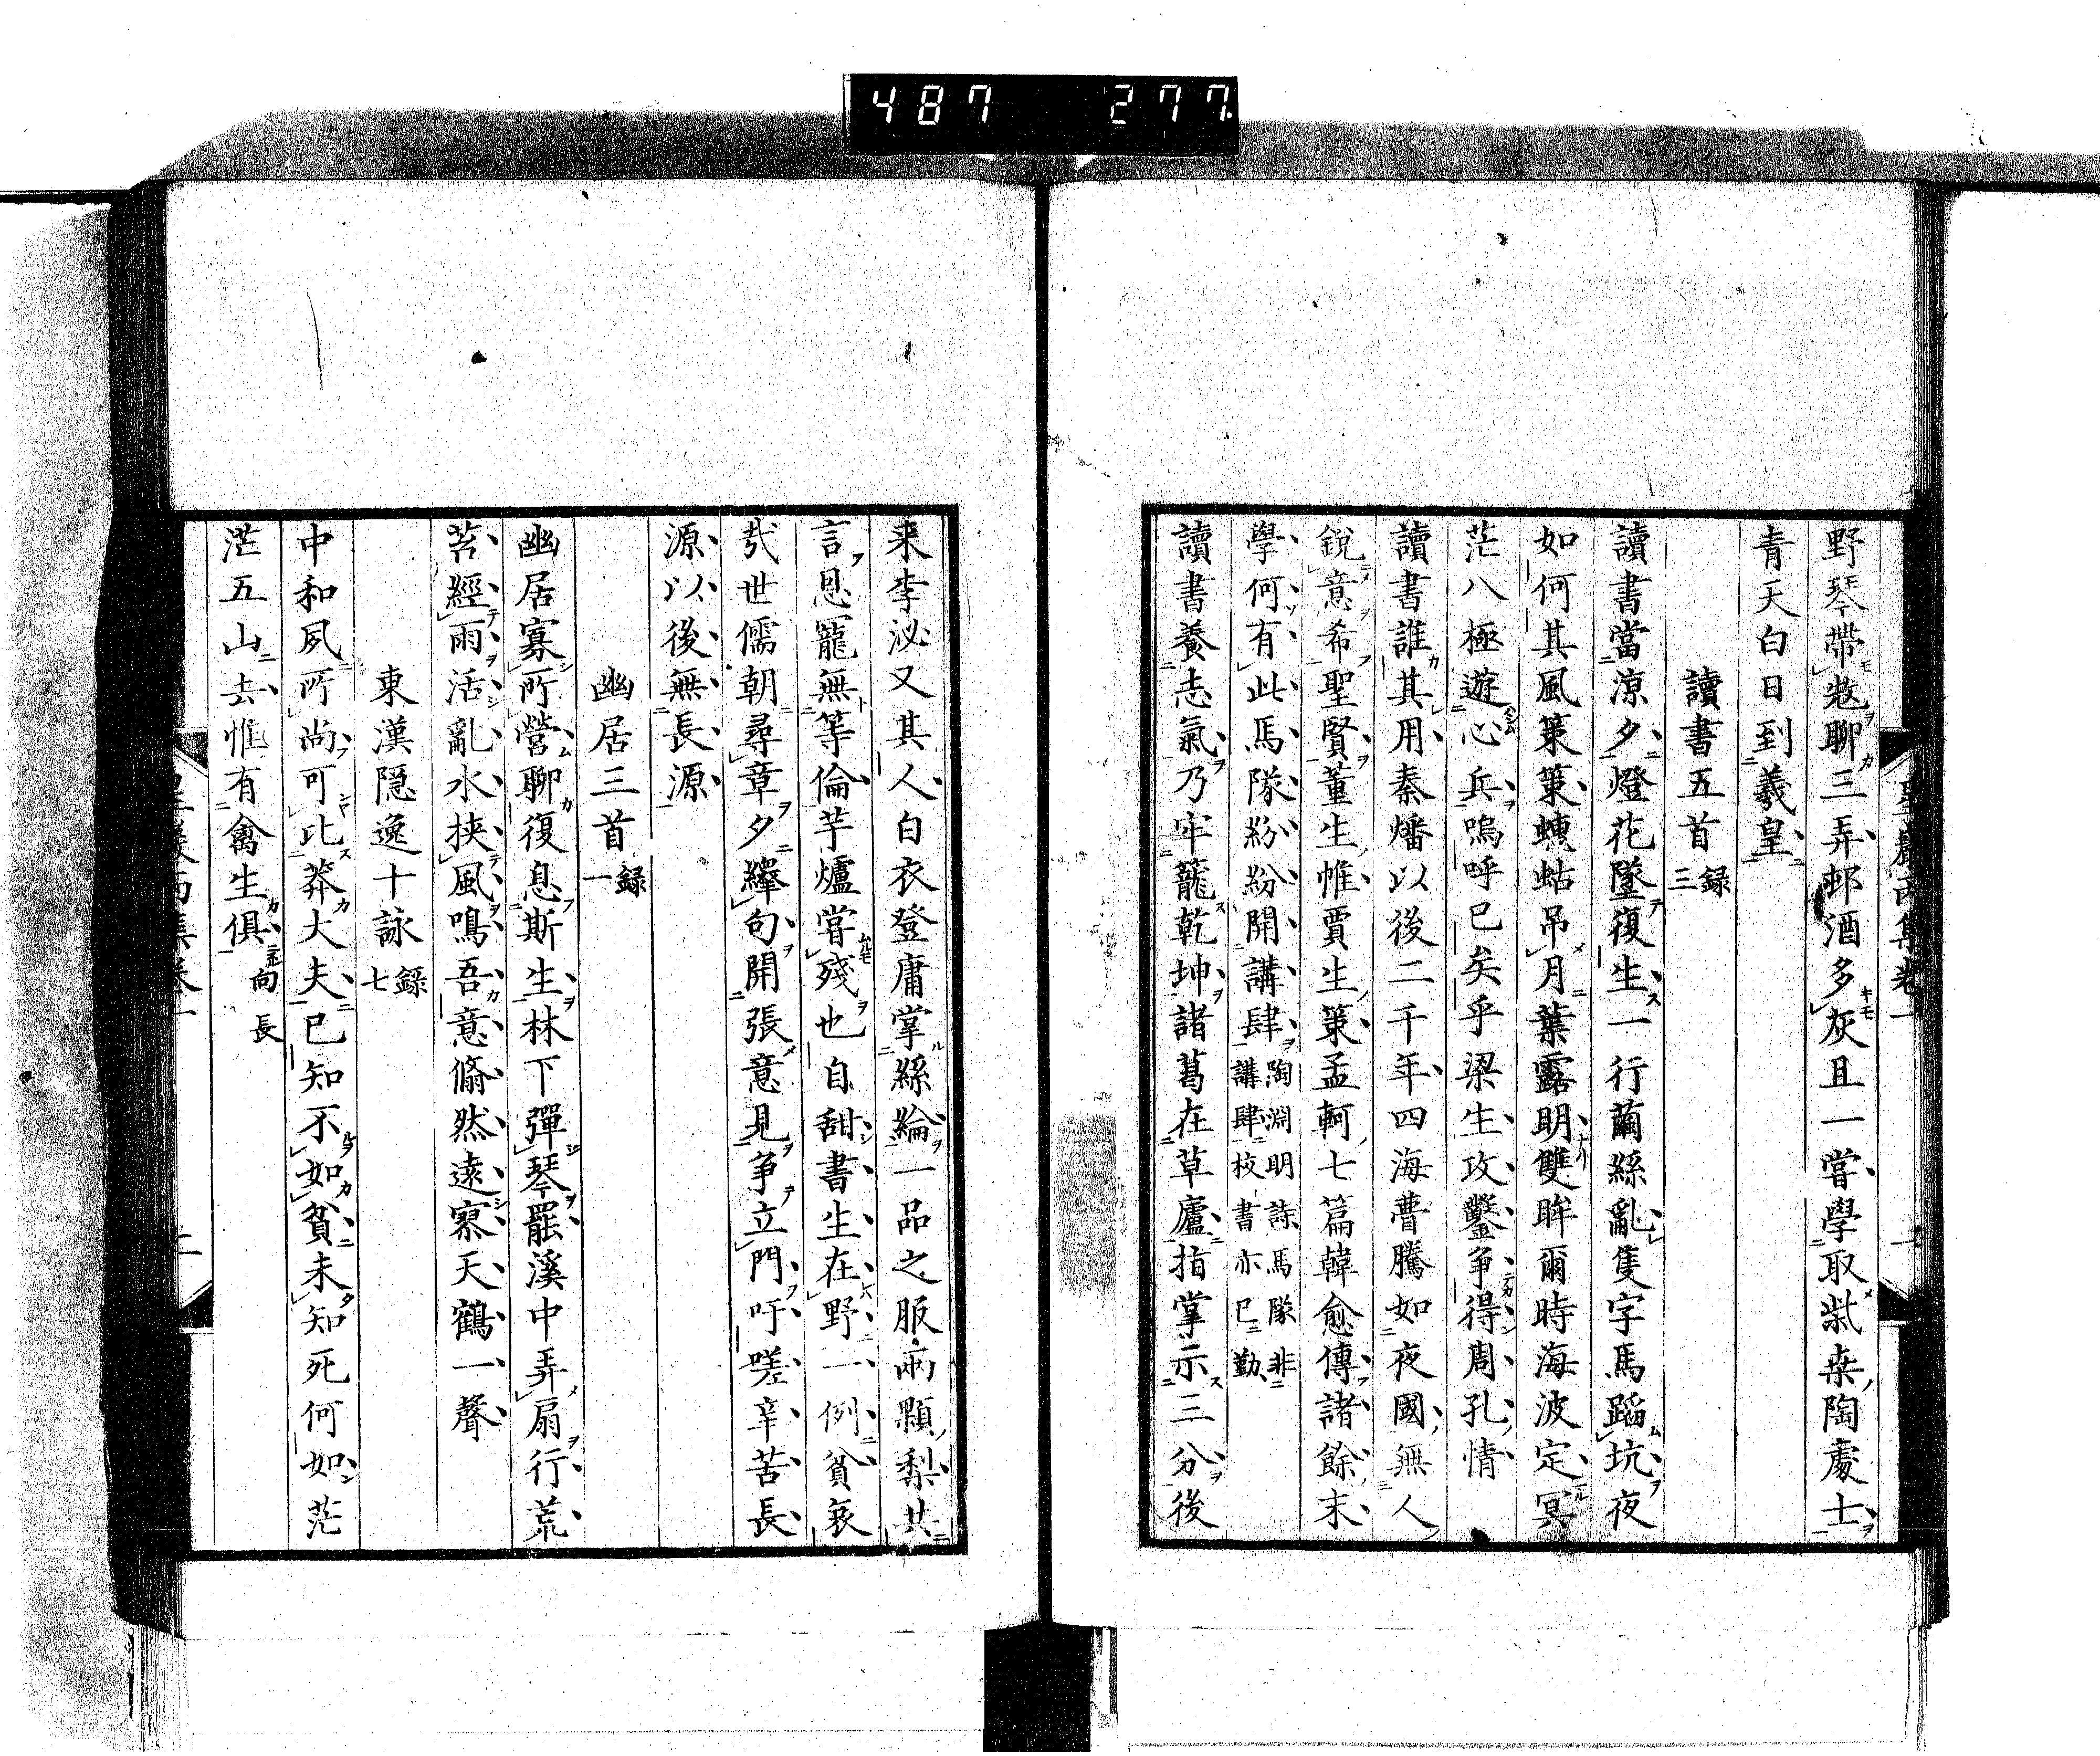 487 277
野琴帶怒聊三弄邨酒多灰且一嘗學取柴桒陶處士
青天白日到羲皇
讀書五首 錄三
讀書當凉夕燈花墜復生一行繭絲亂隻字馬蹈坑夜
如何其風策策蟪蛄吊月葉露明雙眸爾時海波定冥
茫八極遊心兵嗚呼已矣乎梁生攻鑿爭得周孔情
讀書誰其用秦燔以後二千年四海瞢騰如夜國無人
銳意希聖賢董生帷賈生策孟軻七篇韓愈傳諸餘末
學何有此馬隊紛紛開講肆 陶淵明詩馬隊非講肆校書亦已勤
讀書養志氣乃牢籠乾坤諸葛在草廬指掌示三分後
来李泌又其人白衣登庸掌絲綸一品之服兩顆梨共
言恩寵無等倫芋爐嘗殘也自甜書生在野一例貧哀
㢤世儒朝尋章夕繹句開張意見爭立門吁嗟辛苦長
源以後無長源
幽居三首 錄一
幽居寡所營聊復息斯生林下彈琴罷溪中弄扇行荒
苔經雨活亂水挾風鳴吾意翛然遠寥天鶴一聲
東漢隱逸十詠 錄七
中和夙所尚可比莽大夫已知不如貧未知死何如茫
茫五山去惟有禽生俱 向長